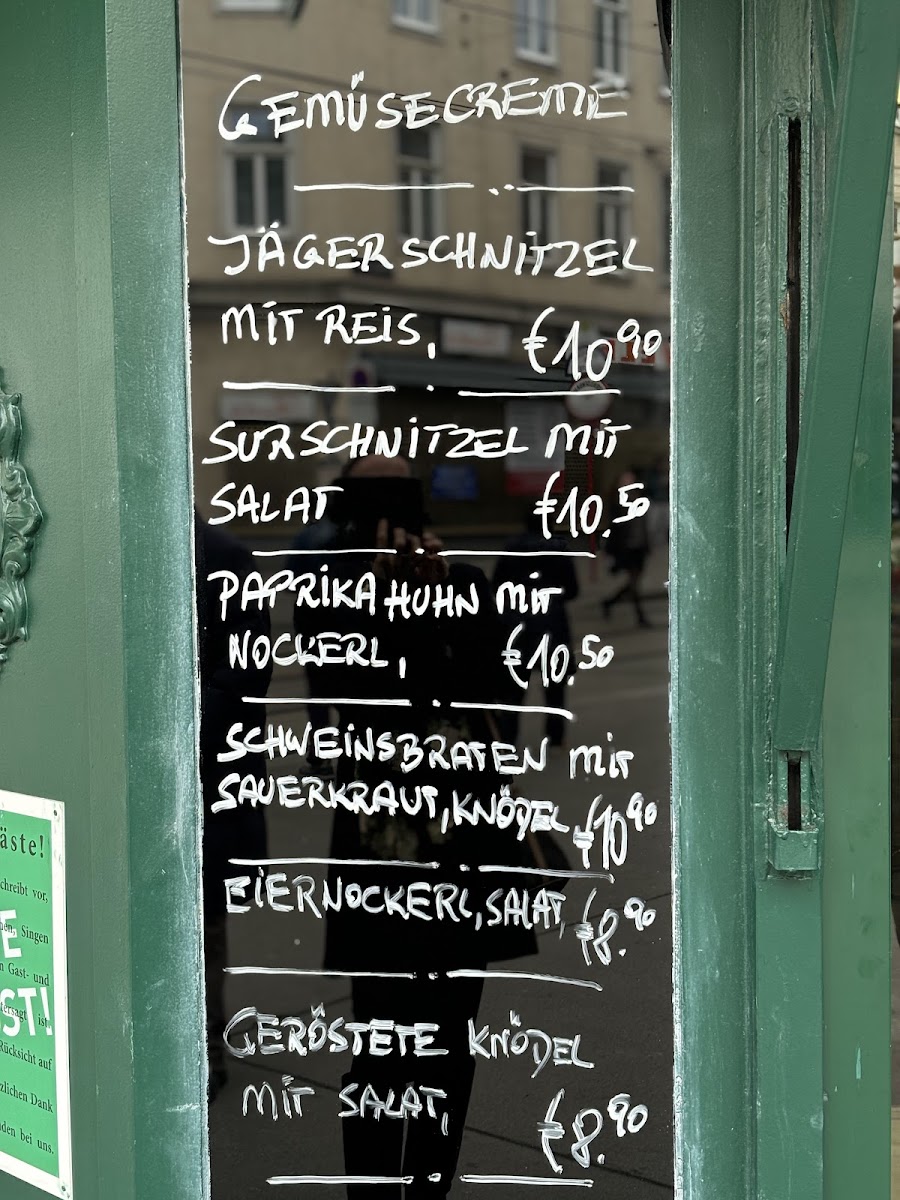 GEMÜSECREME
JÄGERSCHNITZEL
MIT REIS, €10.90
SURSCHNITZEL MIT
SALAT €10.50
PAPRIKAHUHN MIT
NOCKERL, €10.50
SCHWEINSBRATEN MIT
SAUERKRAUT, KNÖDEL, €10.90
EIERNOCKERL, SALAT, €8.90
GERÖSTETE KNÖDEL
MIT SALAT, €8.90
äste!
chreibt vor,
E
Singen
Gast- und
ST!
ist
Rücksicht auf
zlichen Dank
den bei uns.